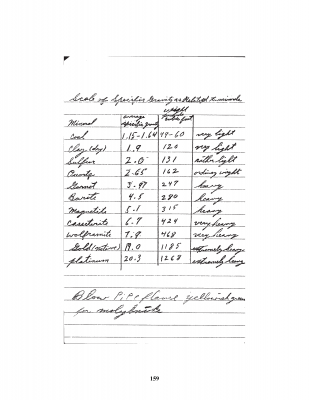 Scale of Specific Gravity as Related to minerals
Mineral average specific gravity weight cubic foot
Coal 1.15-1.64 49-60 very light
Clay (dry) 1.9 120 very light
Sulfur 2.0 131 rather light
2.65 162 ordinary weight
Garnet 3.97 247 heavy
Barite 4.5 280 heavy
Magnetite 5.1 315 heavy
Casseterite 6.7 424 very heavy
wolframite 7.9 468 very heavy
Gold (native) 19.0 1185 extremely heavy
platinum 20.3 1268 extremely heavy
Blow Pipe flame yellowish green
for molybnite
159